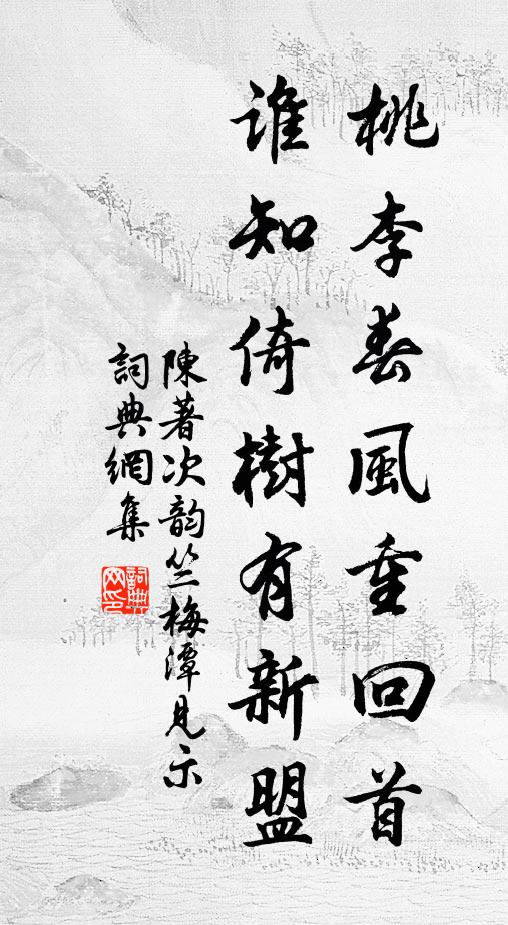 桃李春風重回首
誰知倚樹有新盟
陳著次韵竺梅潭見示
詞典網集
詞典网印